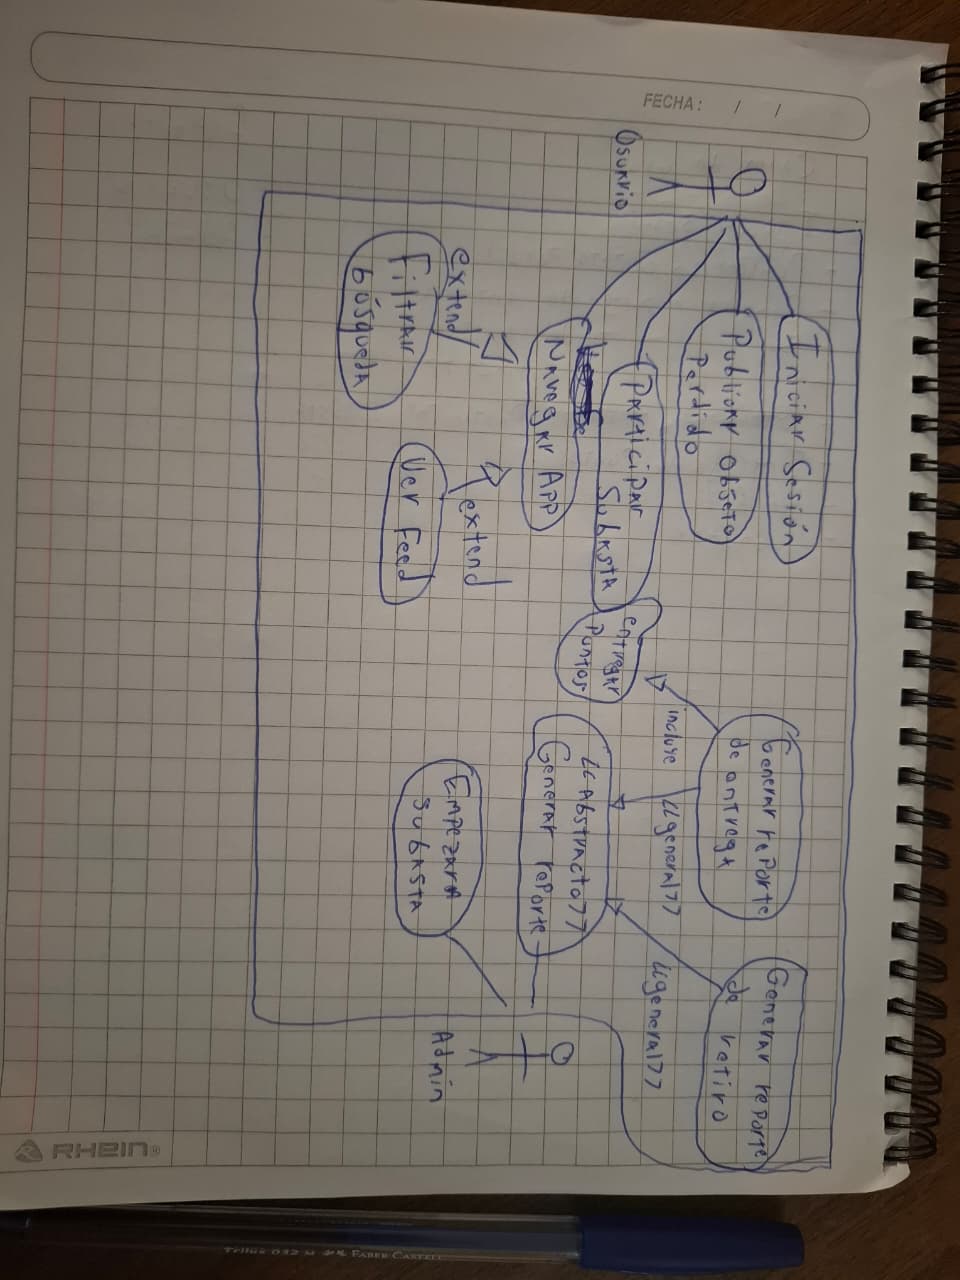 FECHA: / /
Usuario
Iniciar Sesión
Publicar objeto
Perdido
Participar
Subasta
Navegar App
extend
Filtrar
búsqueda
extend
Ver Feed
entregar
Puntos
incluye
Generar reporte
de entrega
<<general>>
Generar reporte
de retiro
<<general>>
<<Abstracto>>
Generar reporte
Empezar
subasta
Admin
RHEIN®
Trilux 032 M FABER CASTELL